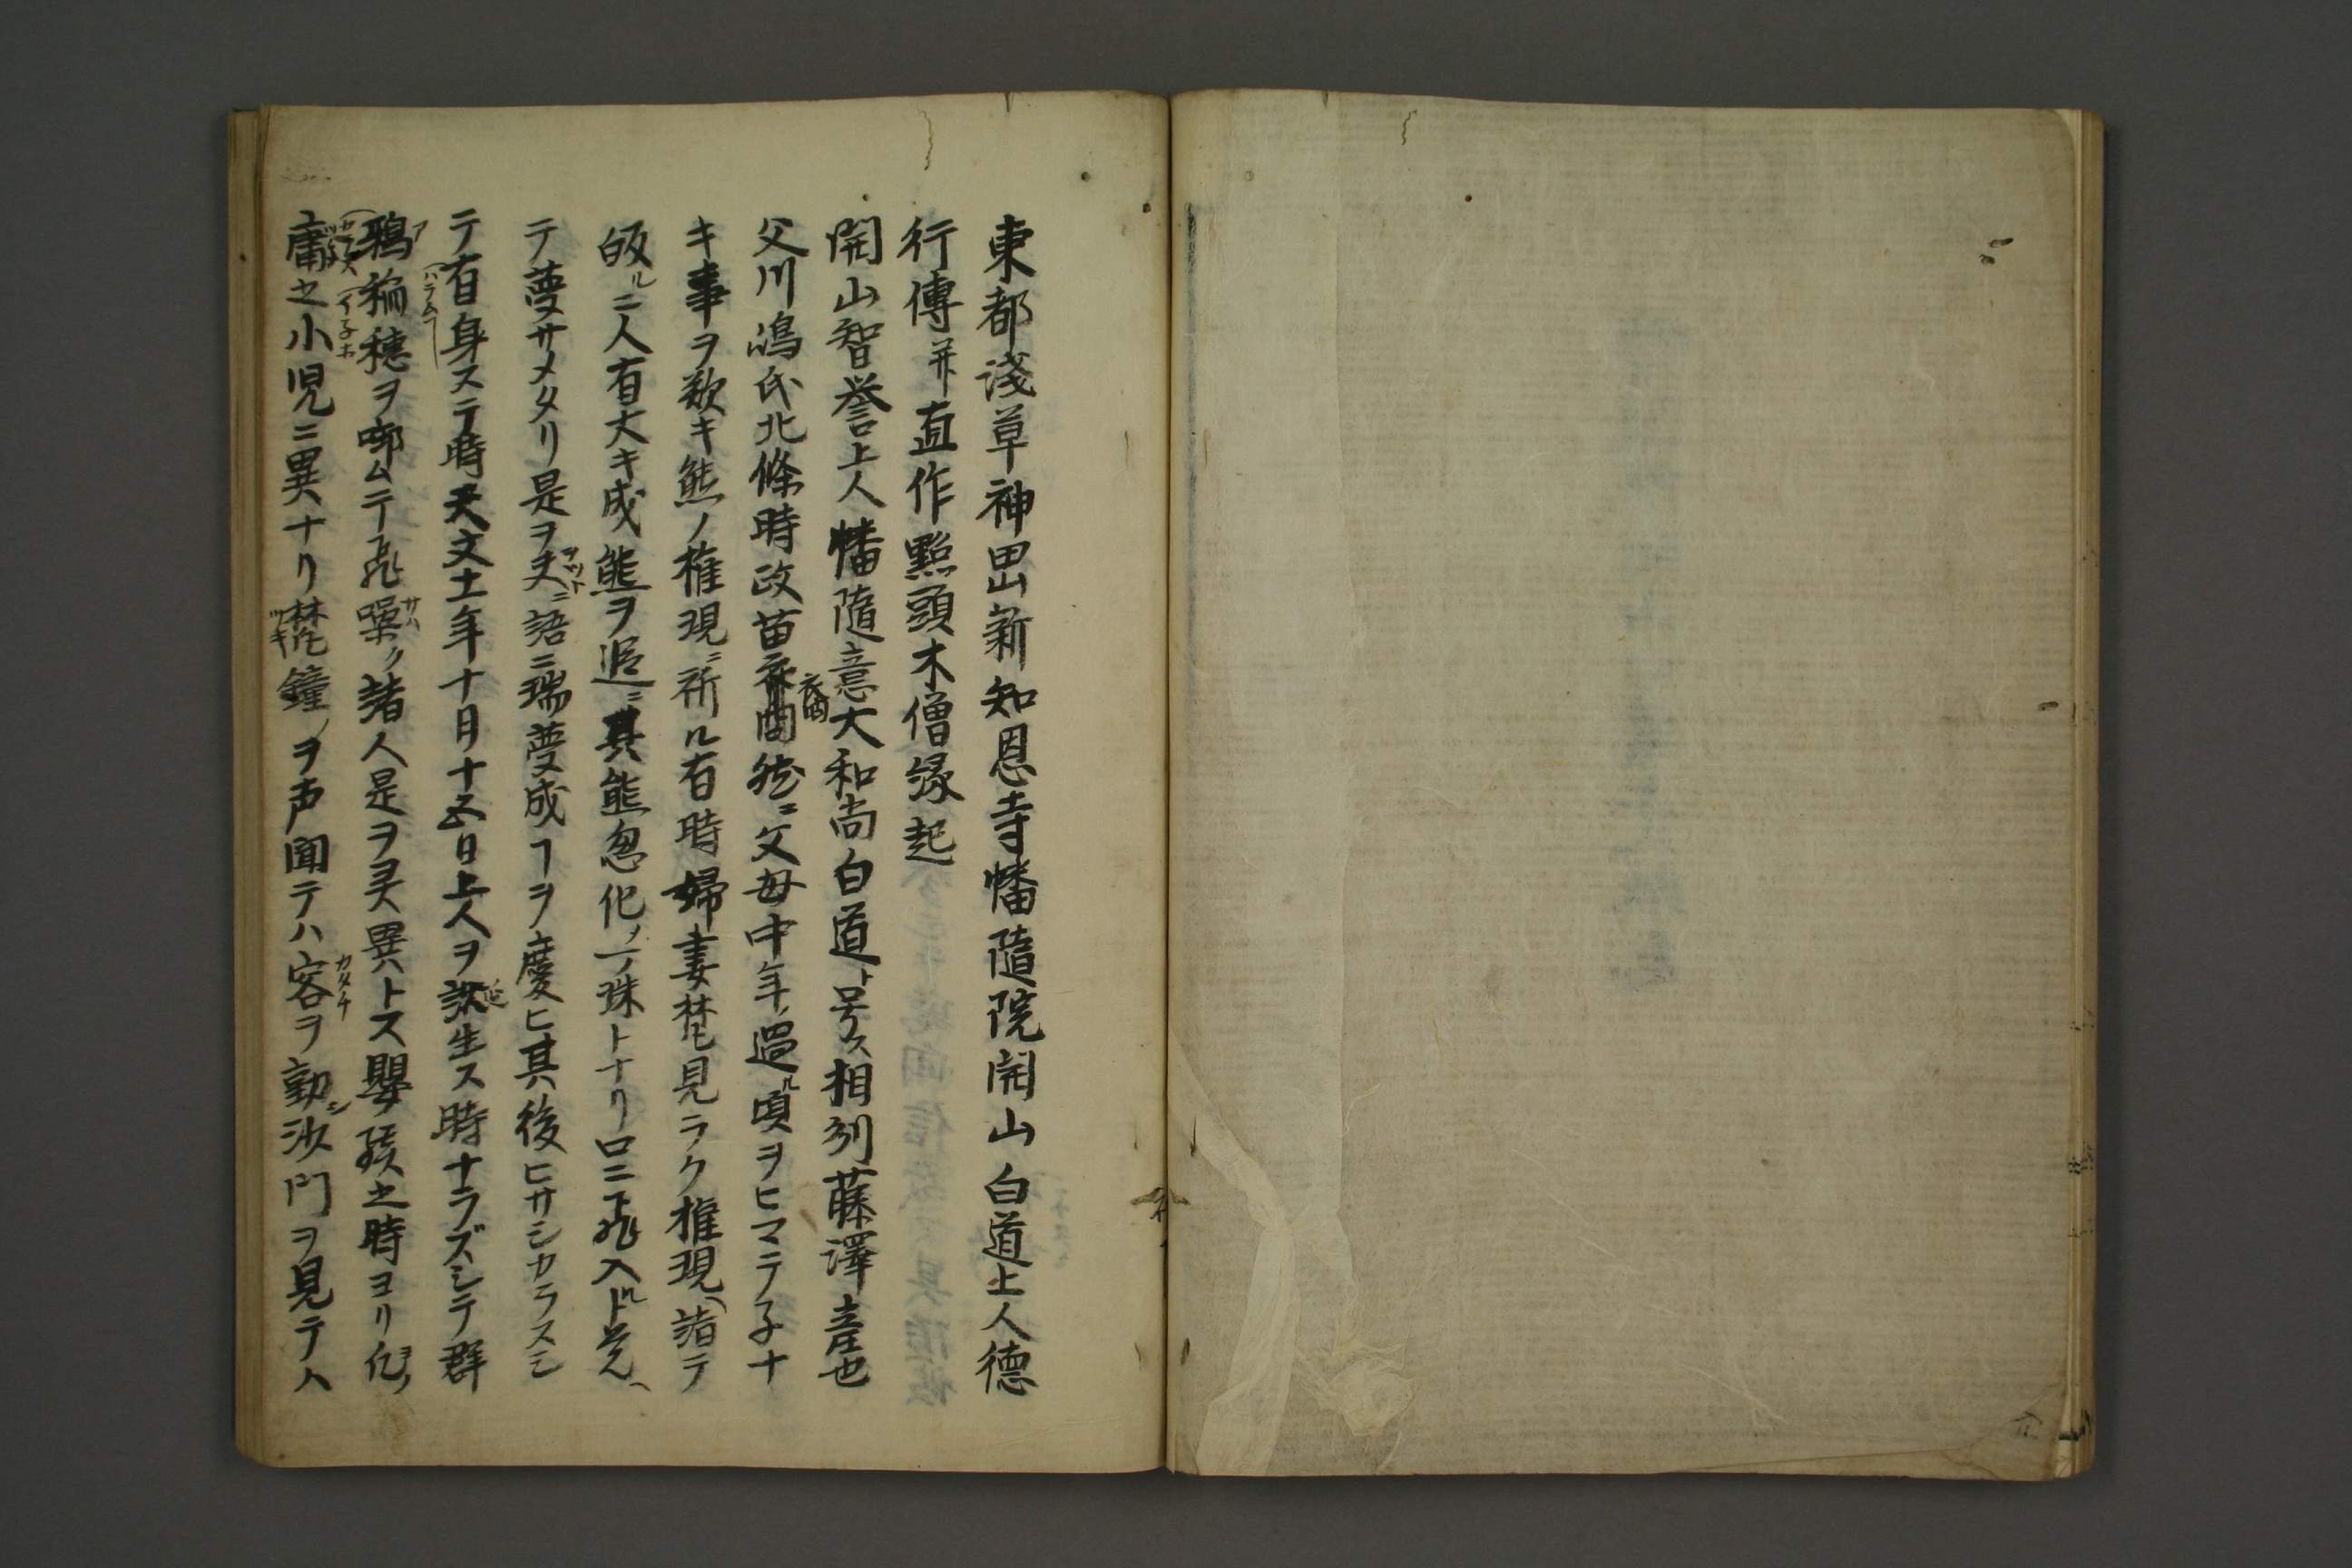 東都淺草神田山新知恩寺幡隨院開山白道上人德
行傳并直作點頭木僧縁起
開山智誉上人幡隨意大和尚白道ト号ス相列藤澤産也
父川嶋氏北條時政苗裔也然ニ父母中年過ル頃ヲヒマテ子ナ
キ事ヲ歎キ熊ノ権現ニ祈ル有時婦妻梦見ラク権現詣テ
皈ルニ人有大キ成熊ヲ追ニ其熊忽化ノ一珠トナリ口ニ飛入ルト覚ヘ
テ夢サメタリ是ヲ夫ニ語ニ瑞夢成ヿヲ慶ヒ其後ヒサシカラスシ
テ有身ス于時天文十一年十月十五日上人ヲ誕生ス時ナラズシテ群
鴉稲穂ヲ啣ムテ飛噪ク諸人是ヲ灵異トス嬰孩之時ヨリ凡ソ
庸之小児ニ異ナリ梵鐘ヲ声聞テハ容ヲ動シ沙門ヲ見テハ